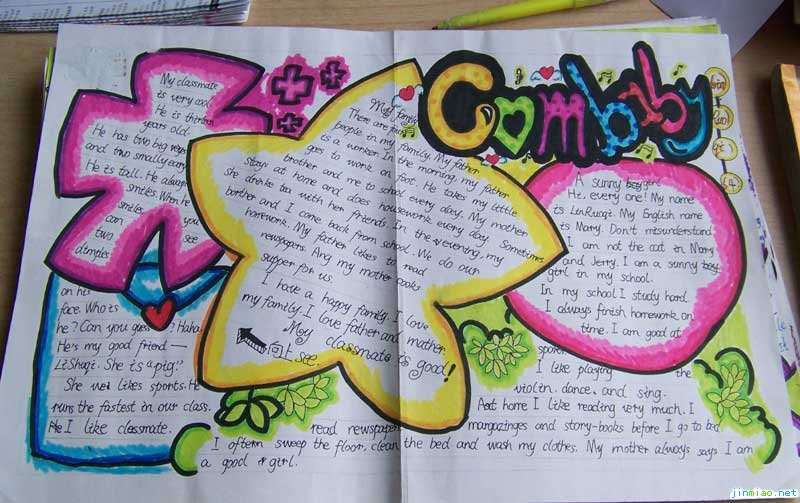 My classmate
is very cool
He is thirteen
years old.
He has two big eyes
and two smally ears
He is tall. He always
smiles. When he
smiles you
can see
two
dimples
on his
face. Who is
he? Can you guess? Haha.
He's my good friend —
LiShaqi. She is a "pig!"
She likes sports. He
runs the fastest in our class.
I like classmate.
My family
There are four
people in my family. My father
is a worker. In the morning, my father
goes to work on foot. He takes my little
brother and me to school every day. My mother
stays at home and does housework every day. Sometimes
she drinke tea with her friends. In the yevening, my
borther and I come back from school. We do our
homework. My father likes to read
newspapers. Ang my mother cooks
supper for us
I have a happy family. I love
my family. I love father and mother.
My classmate is good!
向上see.
Combaby
A sunny girl
Hi, every one! My name
is LinRuoqi. My English name
is Marry. Don't misunderstand
I am not the cat in Mary
and Jerry. I am a sunny
girl in my school.
In my school I study hard.
I always finish homework on
time. I am good at
sport
I like playing the
violin, dance, and sing.
Aat home I like reading very much. I
read newspaper margazinges and story-books before I go to bed.
I oftern sweep the floor, clean the bed and wash my clothes. My mother always says I am
a good girl.
jinmiao.net